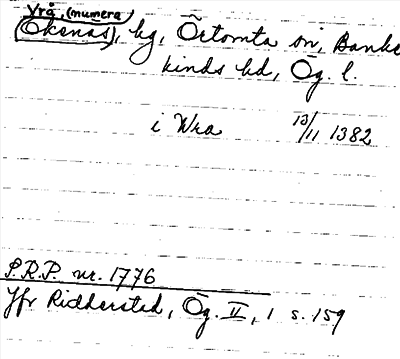 Yrå, (numera
Ekenäs), hg, Örtomta sn, Banke
kinds hd, Ög. l.
i Wra 13/11 1382
S.R.P. nr. 1776
Jfr Ridderstad, Ög. II, 1 s. 159